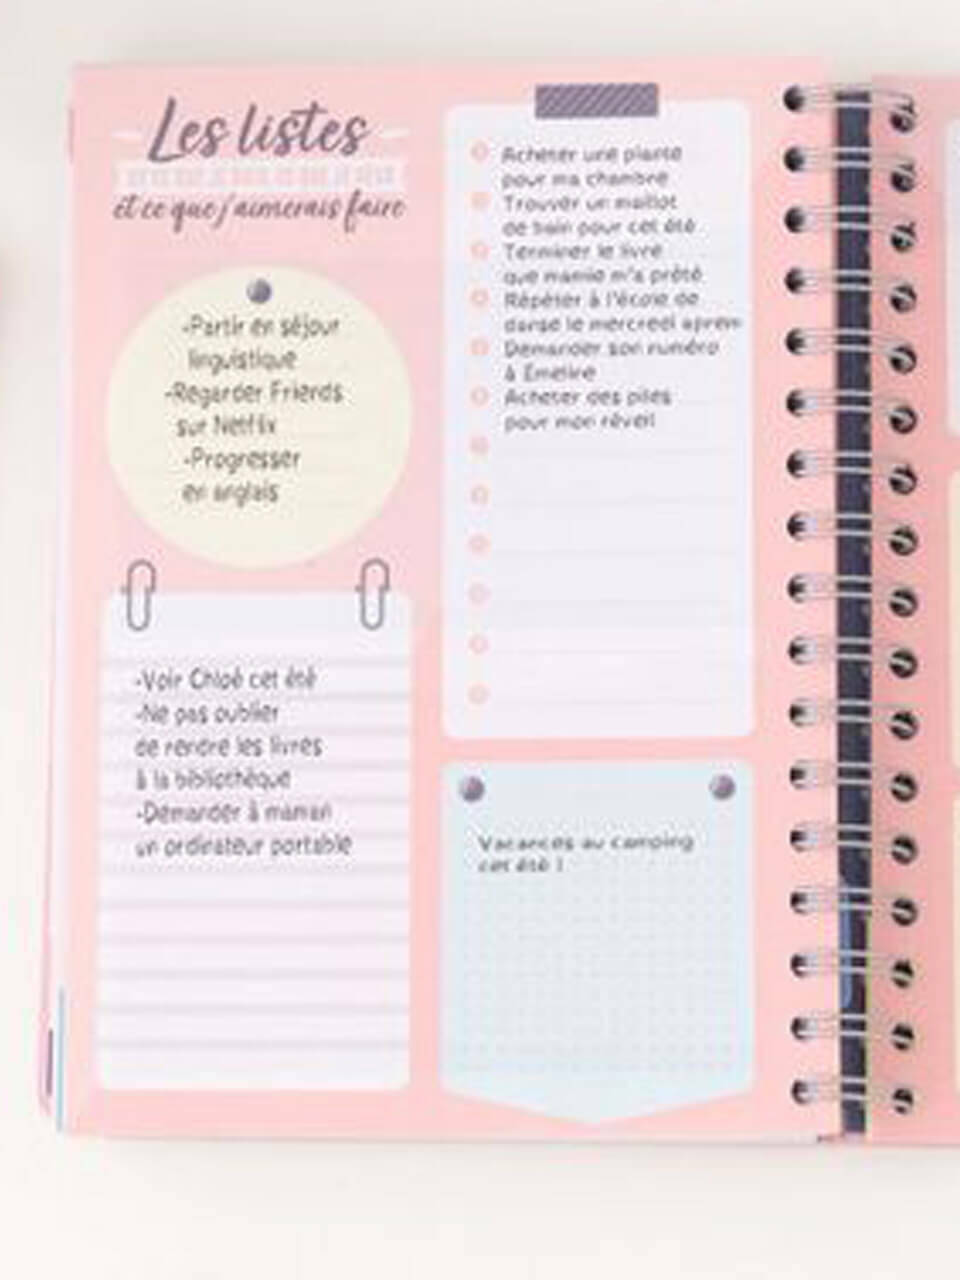 Les listes
DE CE QUE JE DOIS, CE QUE JE VEUX
et ce que j'aimerais faire
-Partir en séjour
linguistique
-Regarder Friends
sur Netflix
-Progresser
en anglais
-Voir Chloé cet été
-Ne pas oublier
de rendre les livres
à la bibliothèque
-Demander à maman
un ordinateur portable
Acheter une plante
pour ma chambre
Trouver un maillot
de bain pour cet été
Terminer le livre
que mamie m'a prêté
Répéter à l'école de
danse le mercredi aprem
Demander son numéro
à Emeline
Acheter des piles
pour mon réveil
Vacances au camping
cet été !